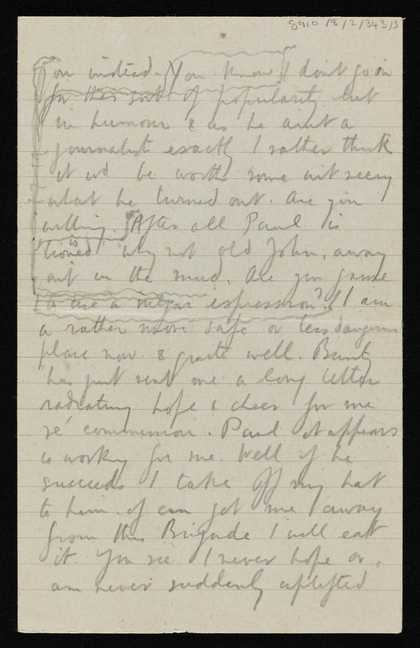 8910/8/2/343/3
You instead. (You know I don't go in
for this sort of popularity but
in humour & as he aint a
journalist exactly I rather think
it wd be worth some
what he turned out. Are you
willing. After all Paul is
tioned why not old John, away
out in the mud. Are you
to use a vulgar expression?) I am
a rather more safe or less dangerous
place now & quite well. Bunty
has just sent me a long letter
radiating hope & cheer for me
re commission. Paul it appears
is working for me. Well if he
succeeds I take off my hat
to him. if can get me away
from this Brigade I will eat
it. You see I never hope or,
am never suddenly uplifted